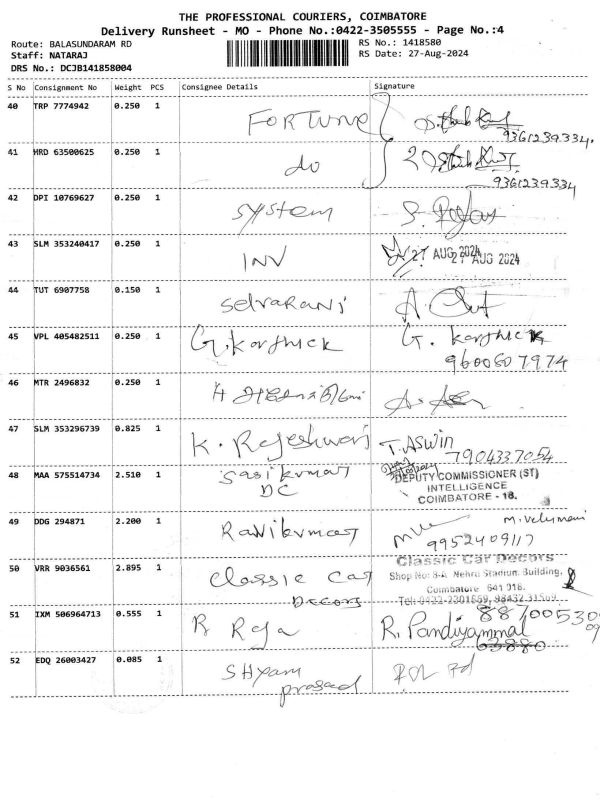 THE PROFESSIONAL COURIERS, COIMBATORE
Delivery Runsheet - MO - Phone No.:0422-3505555 - Page No.:4
Route: BALASUNDARAM RD
Staff: NATARAJ
DRS No.: DCJB141858004
RS No.: 1418580
RS Date: 27-Aug-2024
S No Consignment No Weight PCS Consignee Details Signature
40 TRP 7774942 0.250 1 FORTUNE
9361239334.
41 HRD 63500625 0.250 1 do
9361239334
42 DPI 10769627 0.250 1 System
43 SLM 353240417 0.250 1 INV 27 AUG 2024
27 AUG 2024
44 TUT 6907758 0.150 1 Selvarani
45 VPL 405482511 0.250 1 G. Karthick G. Karthick
9600607974
46 MTR 2496832 0.250 1
47 SLM 353296739 0.825 1 K. Rajeshwari T. ASwin
7904337054
48 MAA 575514734 2.510 1 Sasikumar
DC
DEPUTY COMMISSIONER (ST)
INTELLIGENCE
COIMBATORE - 18.
49 DDG 294871 2.200 1 Ravikumar M. Velumani
9952409117
50 VRR 9036561 2.895 1 Classic Car
Decors
Classic Car Decors
Shop No: 8-A, Nehru Stadium Building,
Coimbatore 641 018.
51 IXM 506964713 0.555 1 R Raja R. Pandiyammal
52 EDQ 26003427 0.085 1 Shyam
prasad